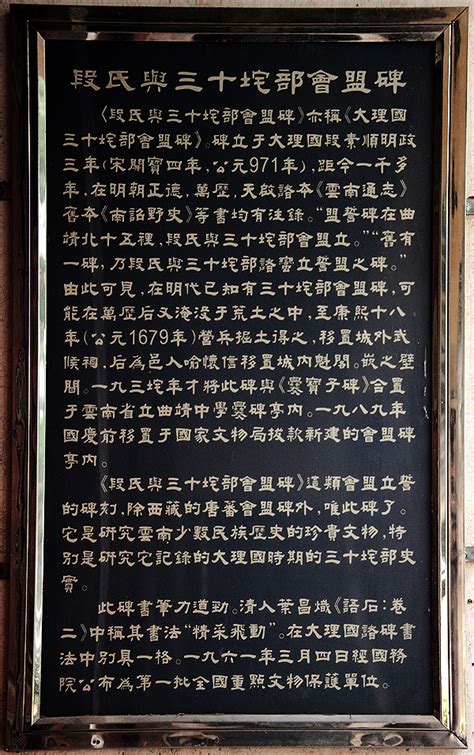 段氏與三十垞部會盟碑
《段氏與三十垞部會盟碑》亦稱《大理國
三十垞部會盟碑》。碑立于大理國段素順明政
三年(宋開寶四年，公元971年)，距今一千多
年，在明朝正德，萬歷，天啟諮夲《雲南通志》
舊夲《南詔野史》等書均有注錄。“盟誓碑在曲
靖北十五裡，段氏與三十垞部會盟立。”“舊有
一碑，乃段氏與三十垞部諮蠻立誓盟之碑。”
由此可見，在明代已知有三十垞部會盟碑，可
能在萬歷后又淹沒于荒土之中，至康熙十八
年(公元1679年)營兵掘土得之，移置城外武
候祠，后為邑人喻懷信移置城內魁閣。嵌之壁
間。一九三垞年才將此碑與《爨寶子碑》合置
于雲南省立曲靖中學爨碑亭內。一九八九年
國慶前移置于國家文物局拔款新建的會盟碑
亭內。
《段氏與三十垞部會盟碑》這類會盟立誓
的碑刻，除西藏的唐蕃會盟碑外，唯此碑了。
它是研究雲南少數民族歷史的珍貴文物，特
別是研究它記錄的大理國時期的三十垞部史
實。
此碑書筆力道勁。清人葉昌熾《語石：卷
二》中稱其書法“精采飛動”。在大理國諮碑書
法中別具一格。一九六一年三月四日經國務
院公布為第一批全國重點文物保護單位。